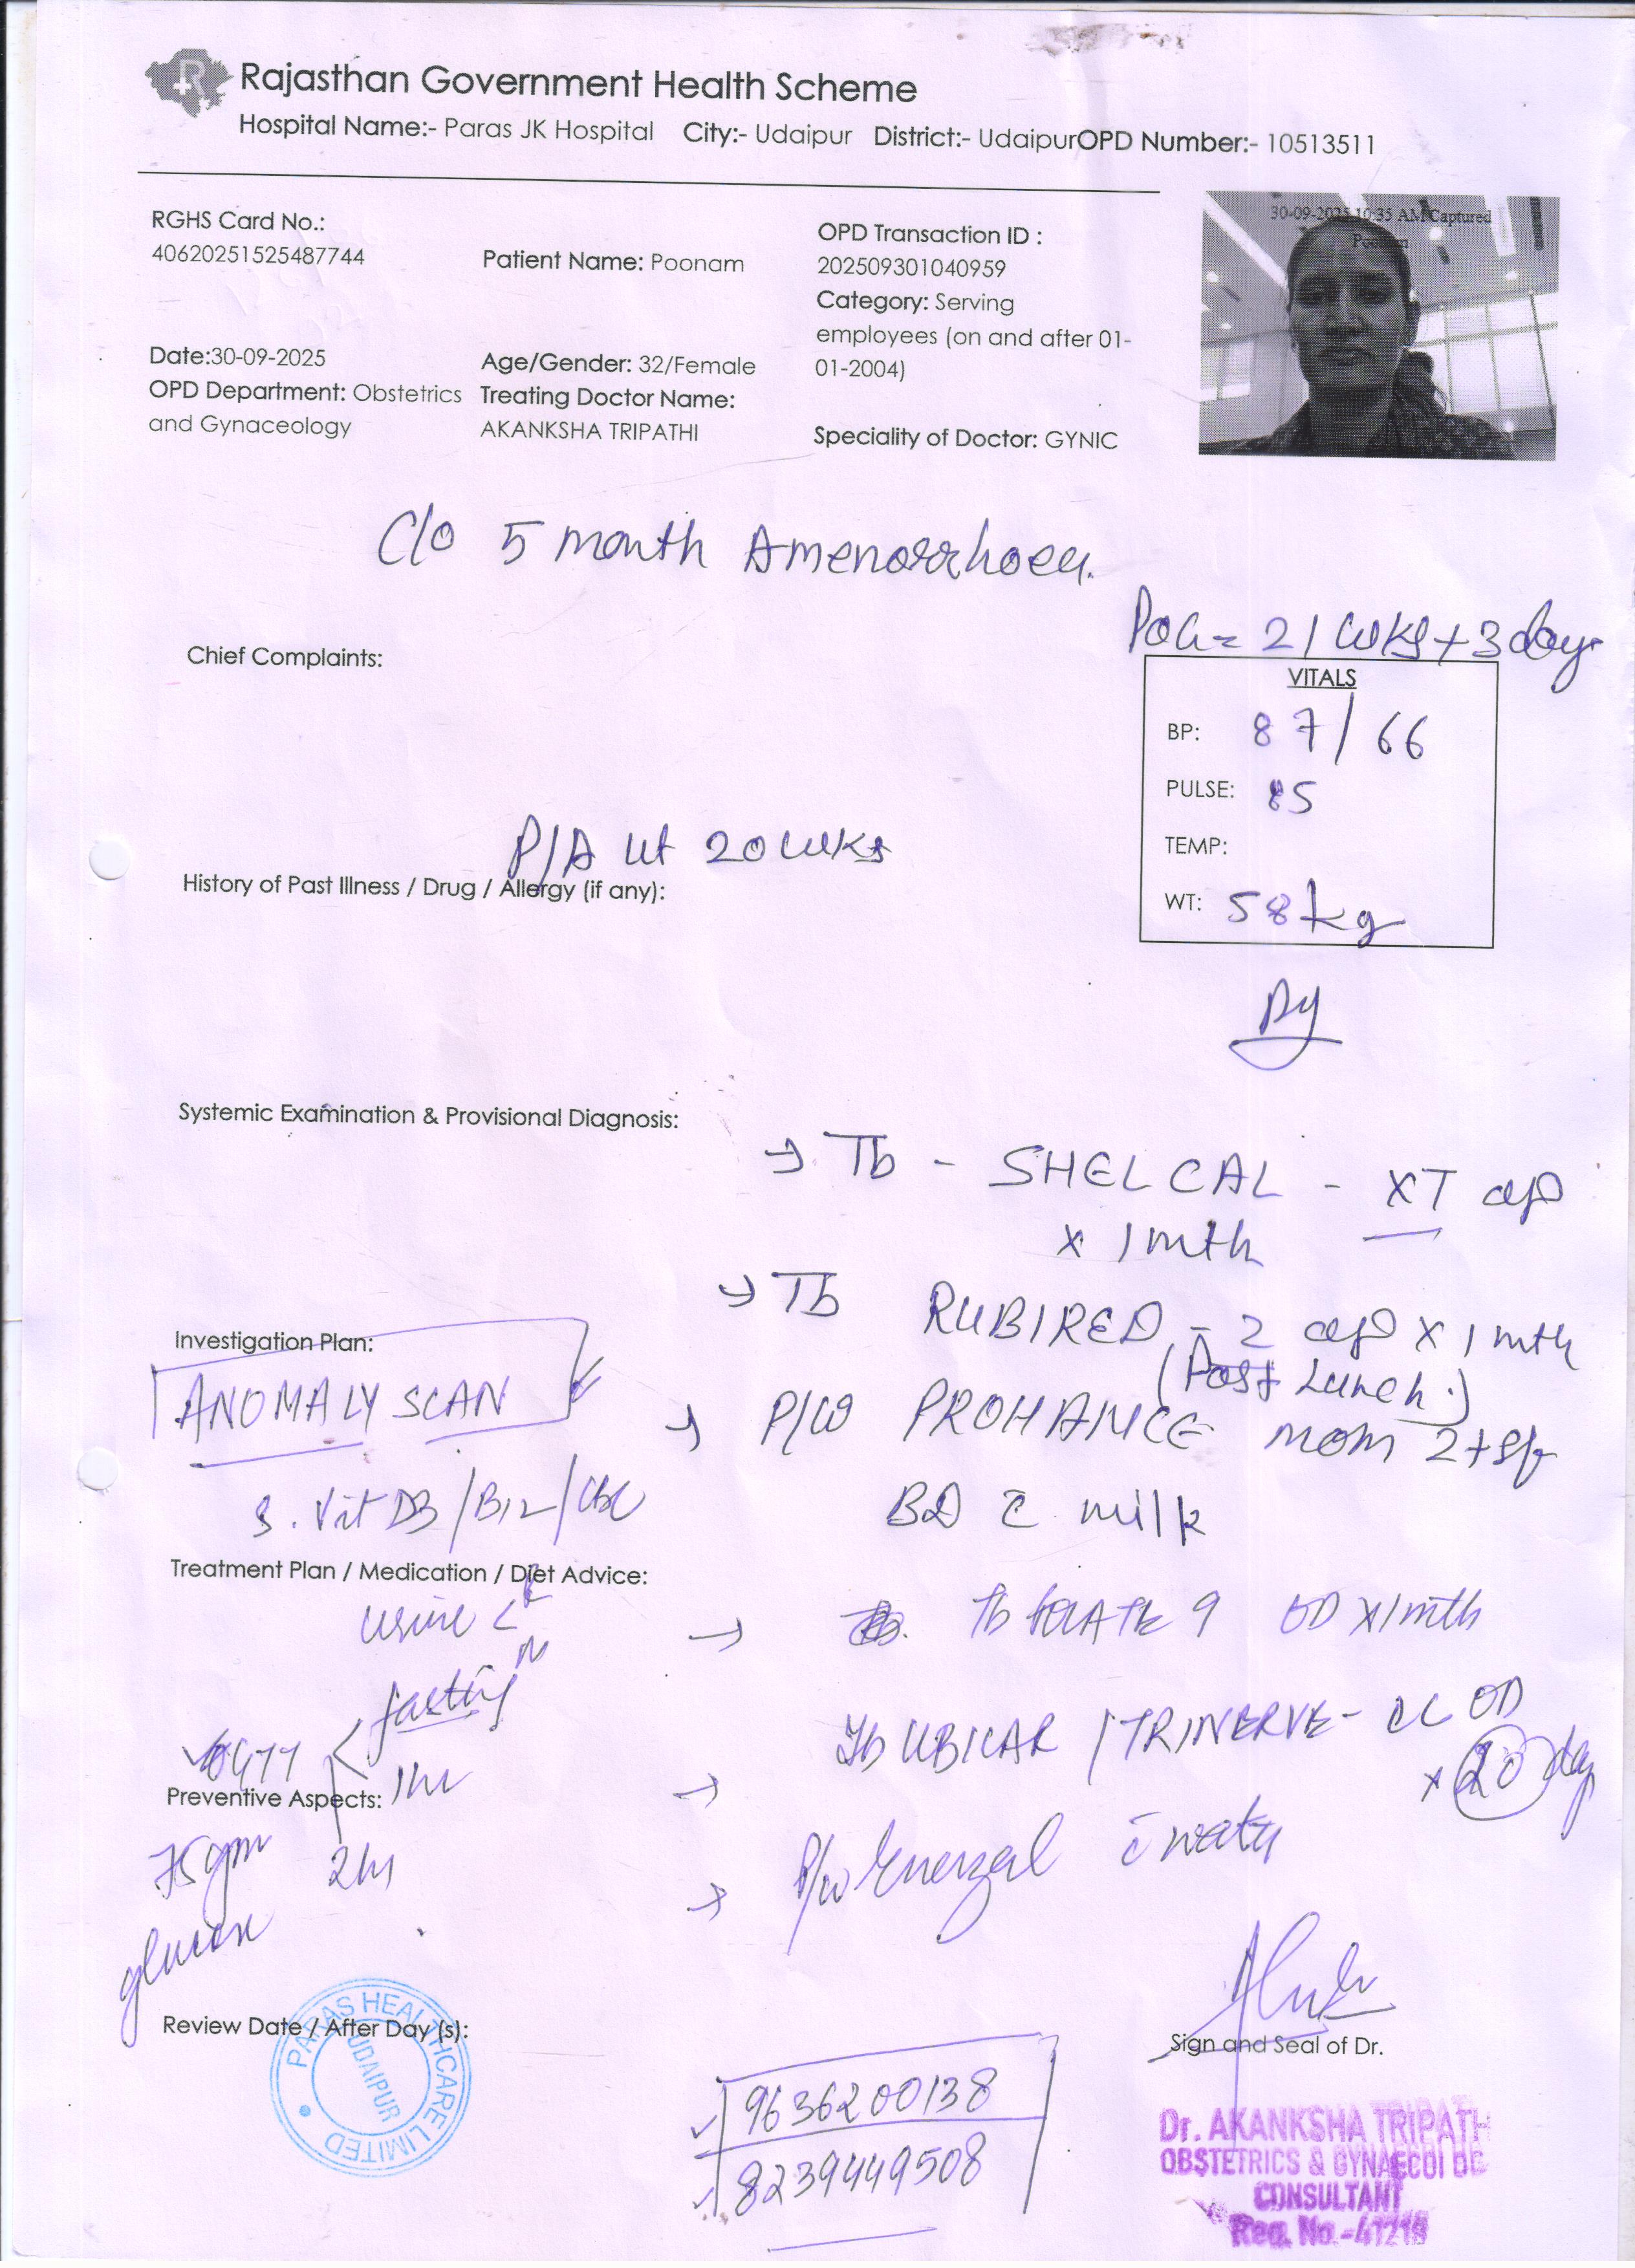 Rajasthan Government Health Scheme
Hospital Name:- Paras JK Hospital City:- Udaipur District:- UdaipurOPD Number:- 10513511
30-09-2025 10:35 AM Captured
Poonam
RGHS Card No.:
40620251525487744
Patient Name: Poonam
OPD Transaction ID :
202509301040959
Category: Serving
employees (on and after 01-
01-2004)
Date:30-09-2025
Age/Gender: 32/Female
OPD Department: Obstetrics
and Gynaceology
Treating Doctor Name:
AKANKSHA TRIPATHI
Speciality of Doctor: GYNIC
C/o 5 month Amenorrhoea.
POG = 21 wks + 3 days
Chief Complaints:
VITALS
BP: 87/66
PULSE: 85
TEMP:
WT: 58 kg
P/A ut 20 wks
History of Past Illness / Drug / Allergy (if any):
Systemic Examination & Provisional Diagnosis:
→ Tb - SHELCAL - XT
x 1 mth
→ Tb RUBIRED - 2 x 1 mth
(Post Lunch.)
Investigation Plan:
ANOMALY SCAN
→ P/W PROHANCE MOM 2 tsf
BD c̄ milk
S. Vit D3/B12/CBC
Treatment Plan / Medication / Diet Advice:
urine < R
M
→ Tb FOLATE 9 OD x 1 mth
OGTT < fasting
1hr
2hr
75gm
glucose
Preventive Aspects:
→ Tb UBICAR / TRINERVE - OD
x 20 day
→ P/w Enerzal c̄ water
Review Date / After Day (s):
PARAS HEALTHCARE LIMITED
UDAIPUR
Sign and Seal of Dr.
9636200138
8239449508
Dr. AKANKSHA TRIPATH
OBSTETRICS & GYNAECOLOG
CONSULTANT
Reg. No.-41219